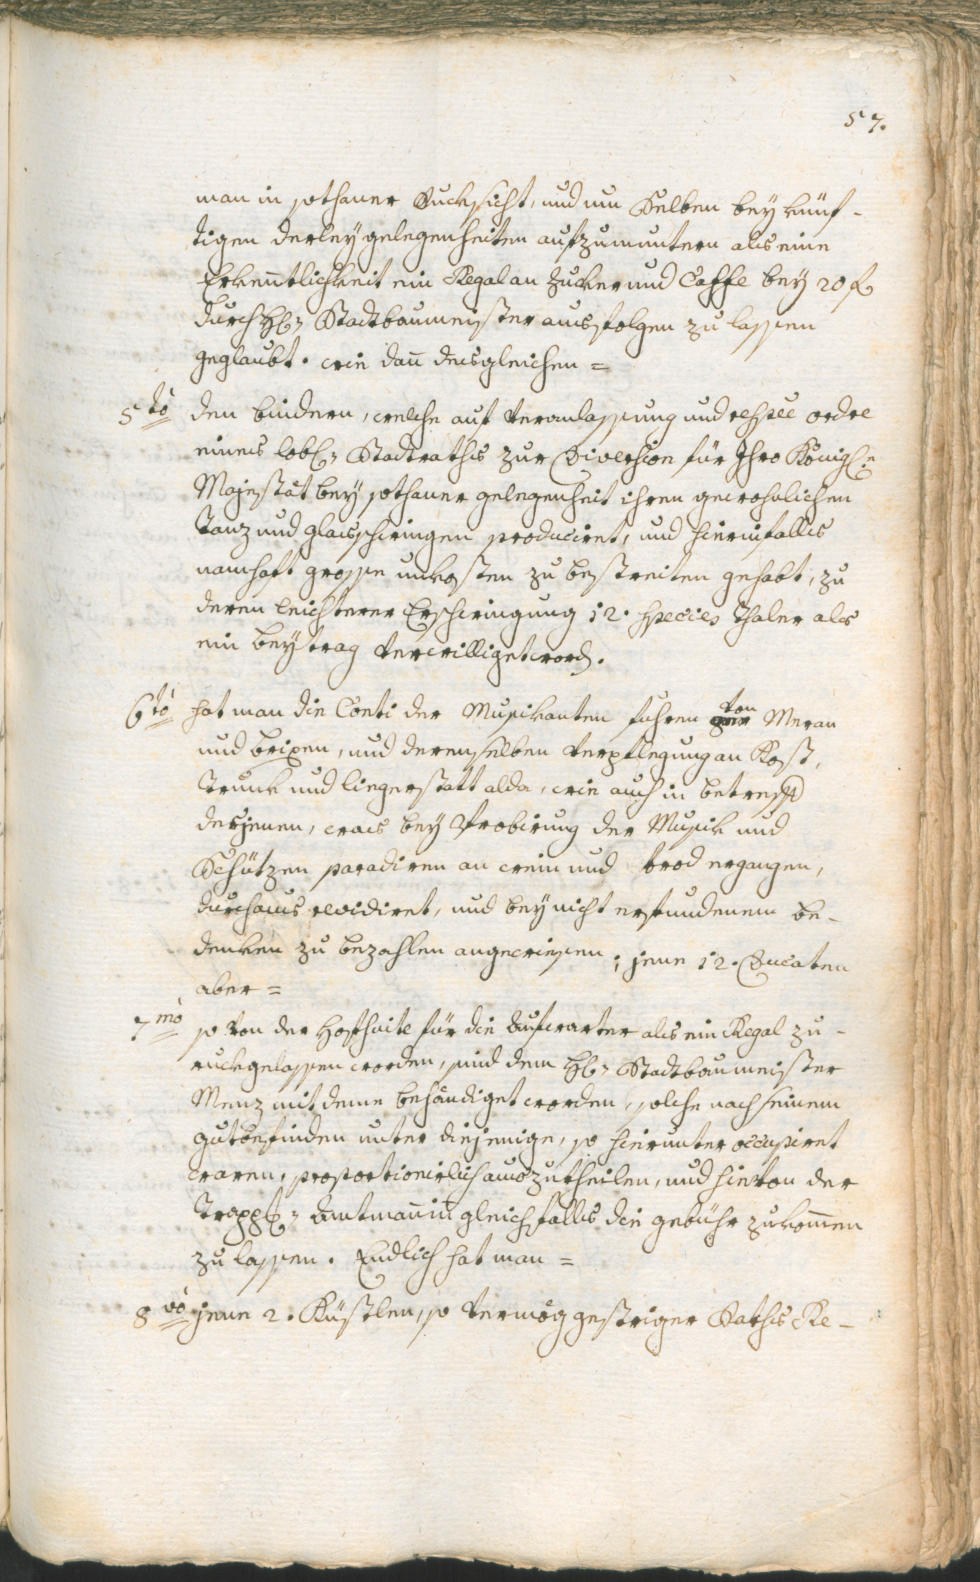 57.
man in sothaner Rucksicht, und um Selben bey künf-
tigen derley gelegenheiten aufzumuntern als eine
Erkentlichkeit ein Regal an Zucker und Caffe bey 20 f
durch H: Stadtbaumeister ausfolgen zu lassen
geglaubt. wie dan desgleichen =
5to den bindern, welche auf veranlassung und respee ordre
eines lobl: Stadtraths zur Diversion für Ihro Königl:e
Majestät bey sothaner gelegenheit ihren gewohnlichen
Tanz und glasschwingen produciret, und hierinfalls
namhaft grosse unkosten zu bestreiten gehabt, zu
deren leichterer Erschwingung 12. species Thaler als
ein beytrag verwilliget word.
6to hat man die Conti der Musikanten fuhren von Meran
und brixen, und derenselben verpflegung an Kost,
Trunk und liegerstatt alda, wie auch in betreff
desjenen, was bey Probirung der Musik und
Schützen paradiren an wein und brod ergangen,
durchaus revidiret, und bey nicht erfundenem be-
denken zu bezahlen angewiesen; jene 12. Ducaten
aber =
7mo so von der Hofsuite für die Aufwarter als ein Regal zu-
ruckgelassen worden, sind dem H: Stadtbaumeister
Menz mit deme behändiget worden, solche nach seinem
gutbefinden unter diejenige, so hierunter occupiret
waren, proportionirlich auszutheilen, und hievon der
Trappl: Amtmanin gleichfalls die gebühr zukomen
zu lassen. Endlich hat man =
8vo jene 2. Küstlen, so vermög gestriger Raths Re-